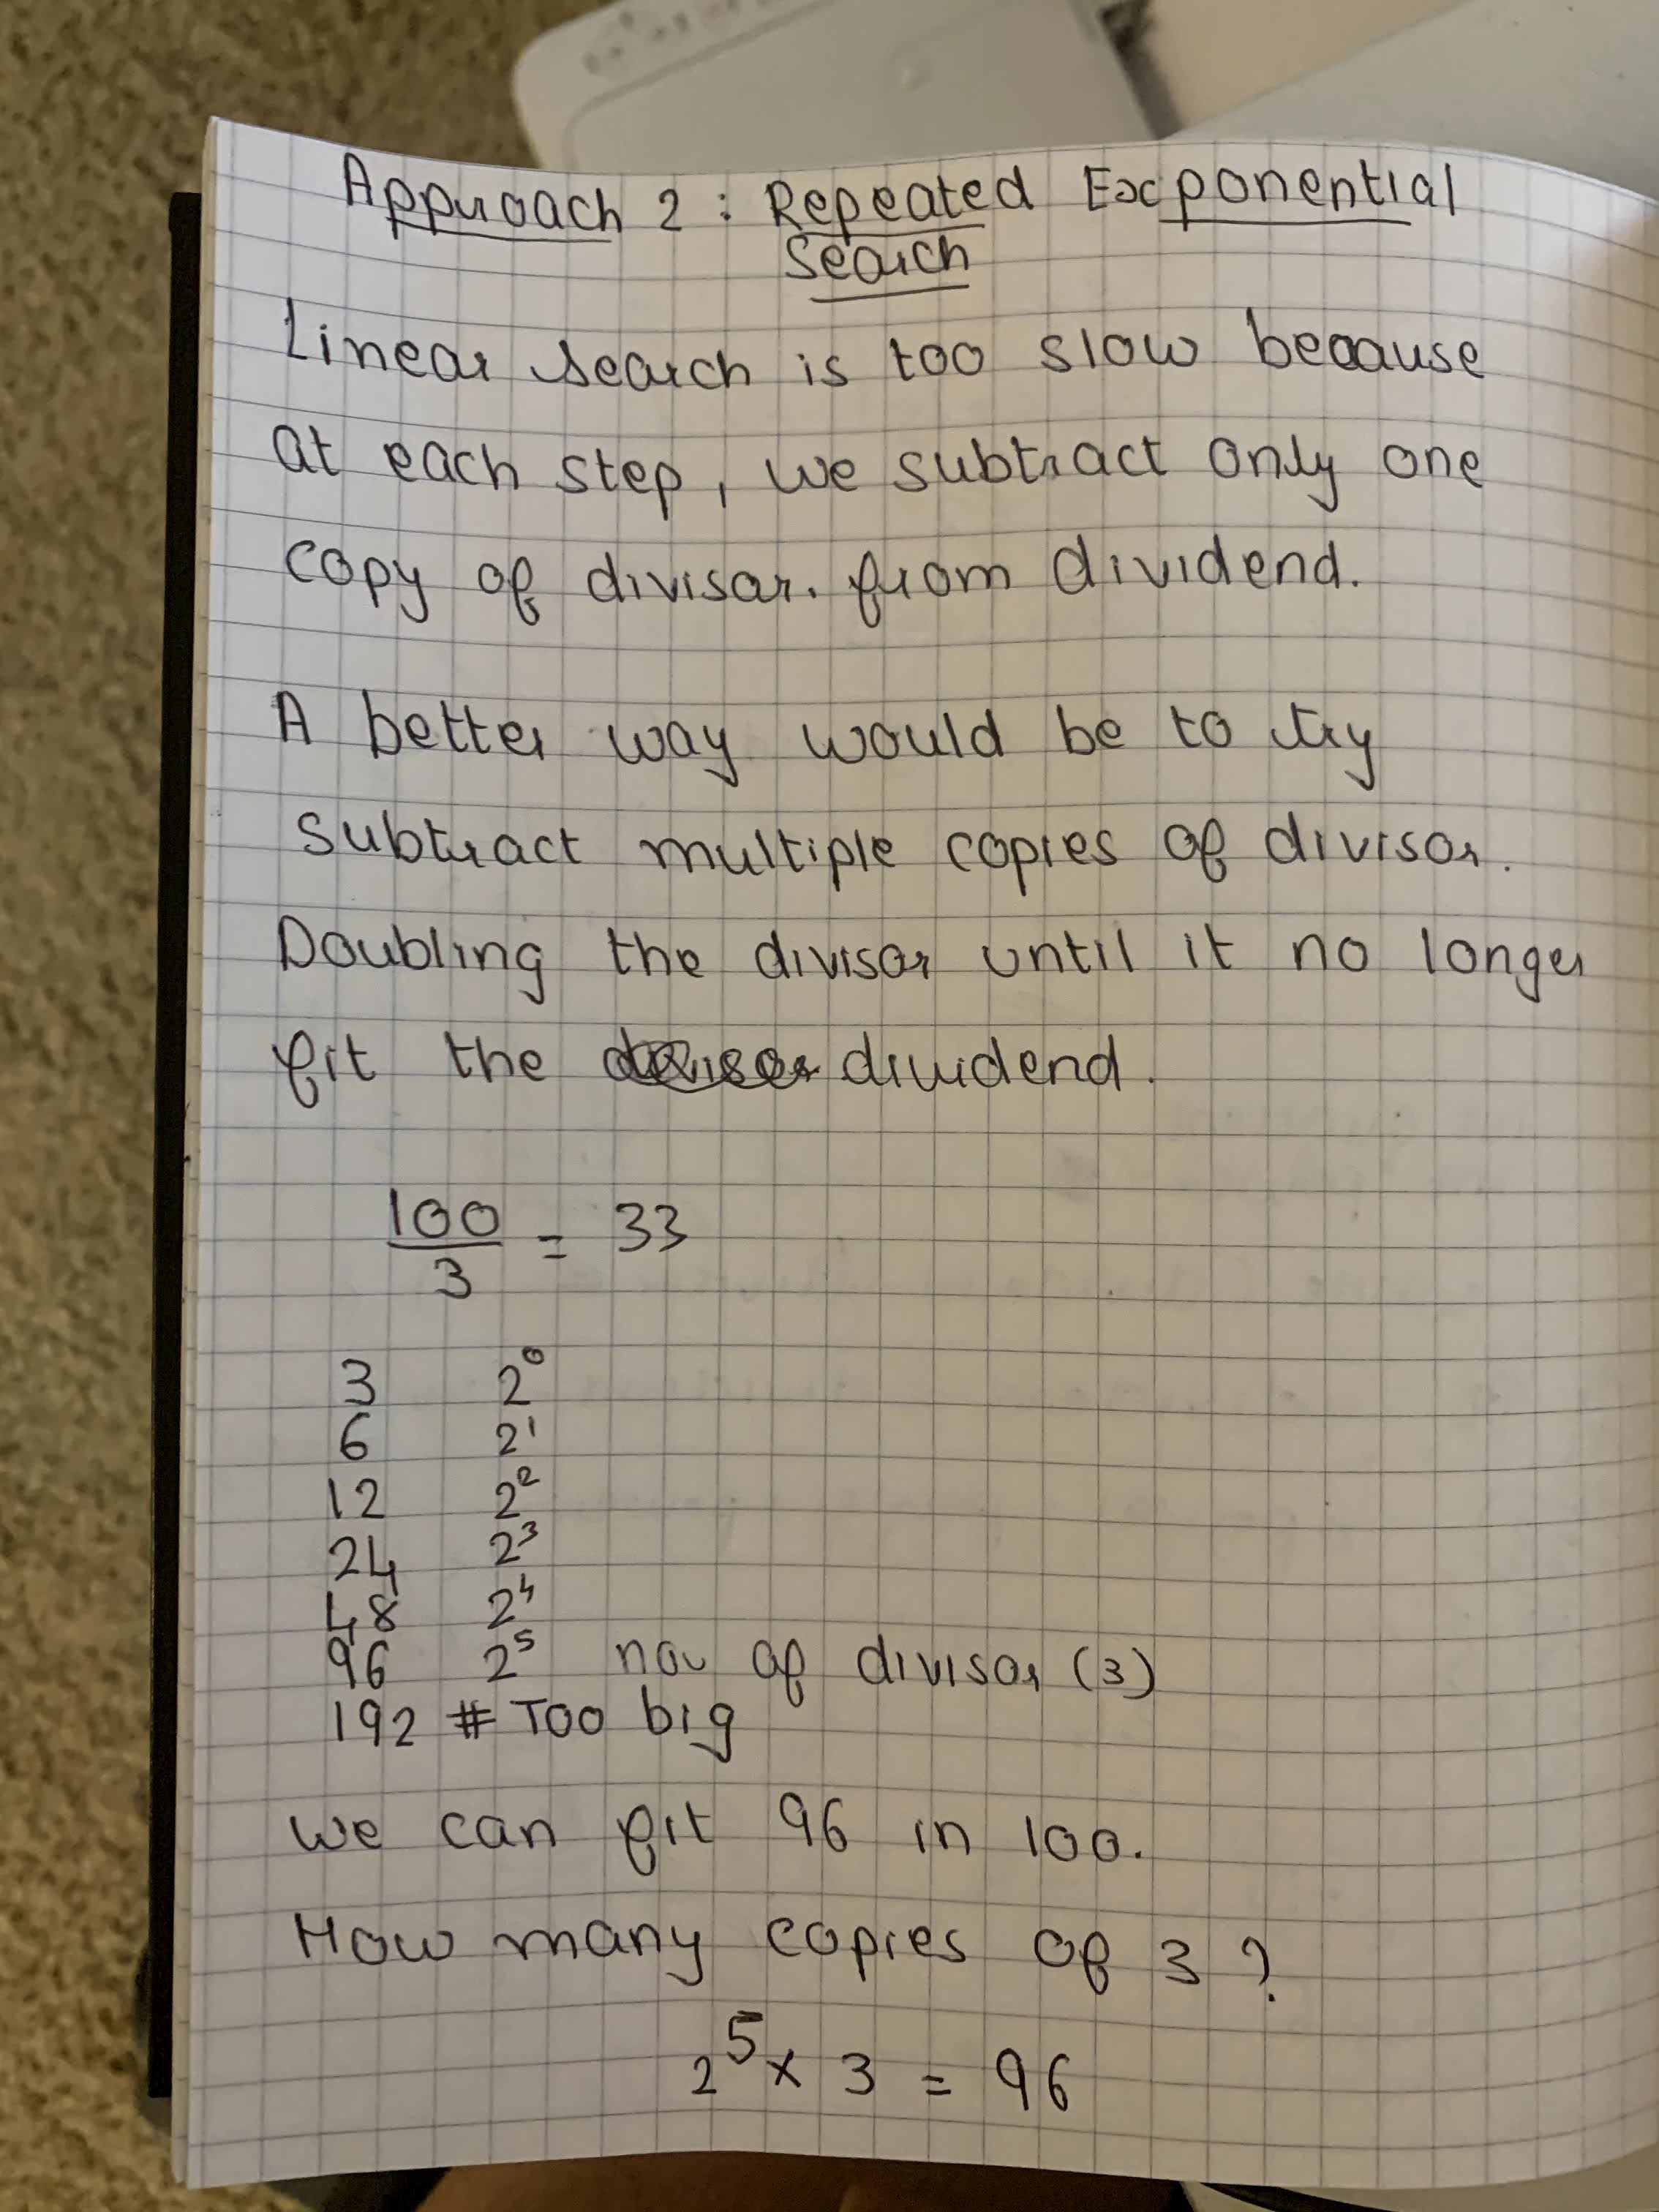 Approach 2 : Repeated Exponential
Search
Linear search is too slow because
at each step, we subtract only one
copy of divisor. from dividend.
A better way would be to try
subtract multiple copies of divisor.
Doubling the divisor until it no longer
fit the dividend.
100
3
= 33
3 2⁰
6 2¹
12 2²
24 2³
48 2⁴
96 2⁵ no. of divisor (3)
192 # Too big
We can fit 96 in 100.
How many copies of 3 ?
2⁵ x 3 = 96